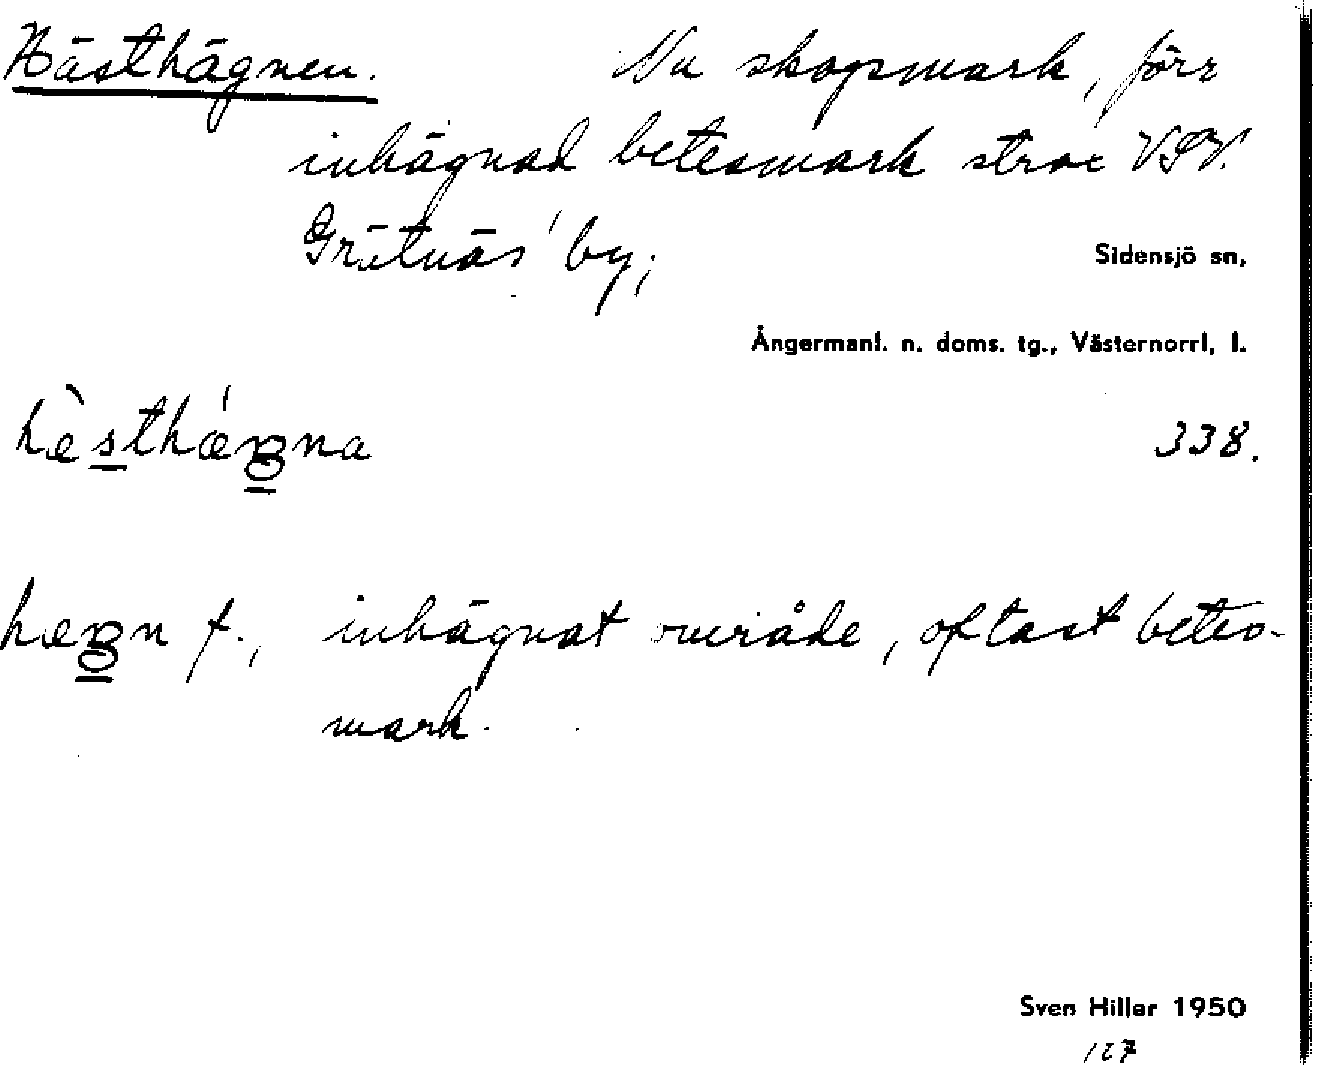 Hästhägnen. Nu skogsmark, förr
inhägnad betesmark strax V
Gretnäs by;
Sidensjö sn,
Ångermanl. n. doms. tg., Västernorrl. l.
338.
f., inhägnat område, oftast betes-
mark.
Sven Hiller 1950
127